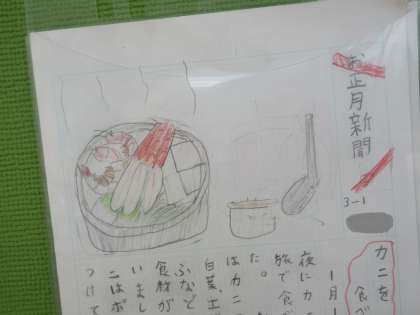 お正月新聞
3-1
カニを
食べ
1月1
夜にカニ
旅で食べ
た。
はカニ
白菜、土
ふなど
食材が
いまし
ニはボ
つけて